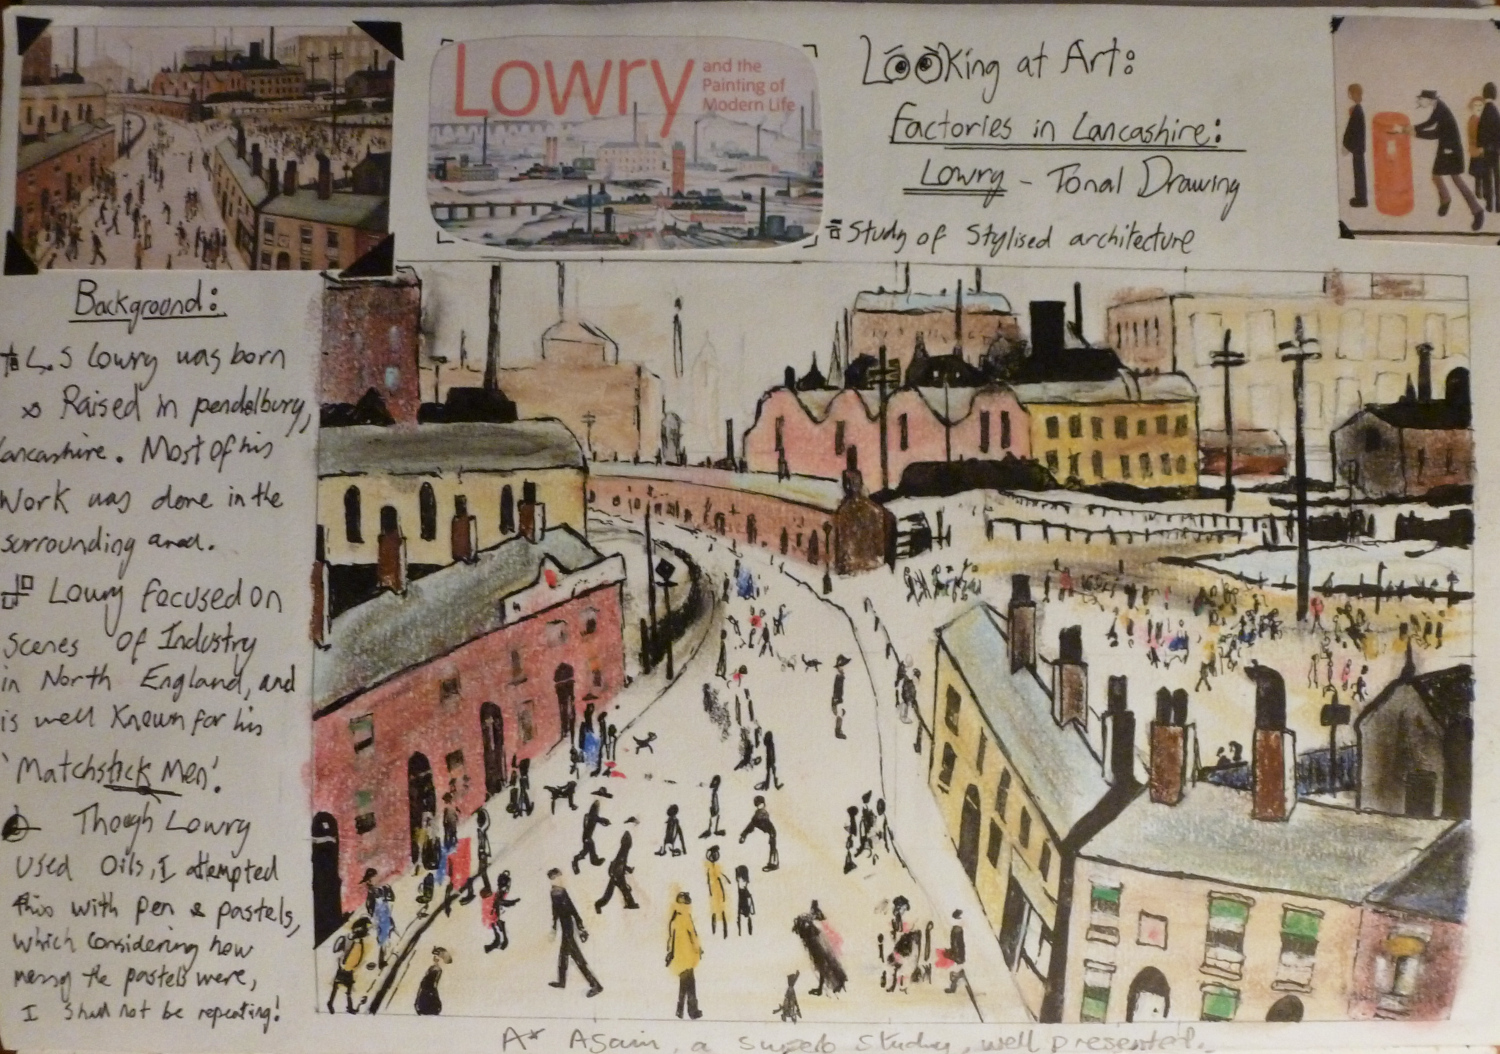 Lowry
and the
Painting of
Modern Life
Looking at Art:
Factories in Lancashire:
Lowry - Tonal Drawing
Study of Stylised architecture
Background:
L.S Lowry was born
& Raised in pendelbury,
lancashire. Most of his
Work was done in the
surrounding area.
Lowry focused on
scenes of Industry
in North England, and
is well Known for his
'Matchstick Men'.
Though Lowry
used Oils, I attempted
this with pen & pastels,
which considering how
messy the pastels were,
I shall not be repeating!
A* Again, a superb study, well presented.